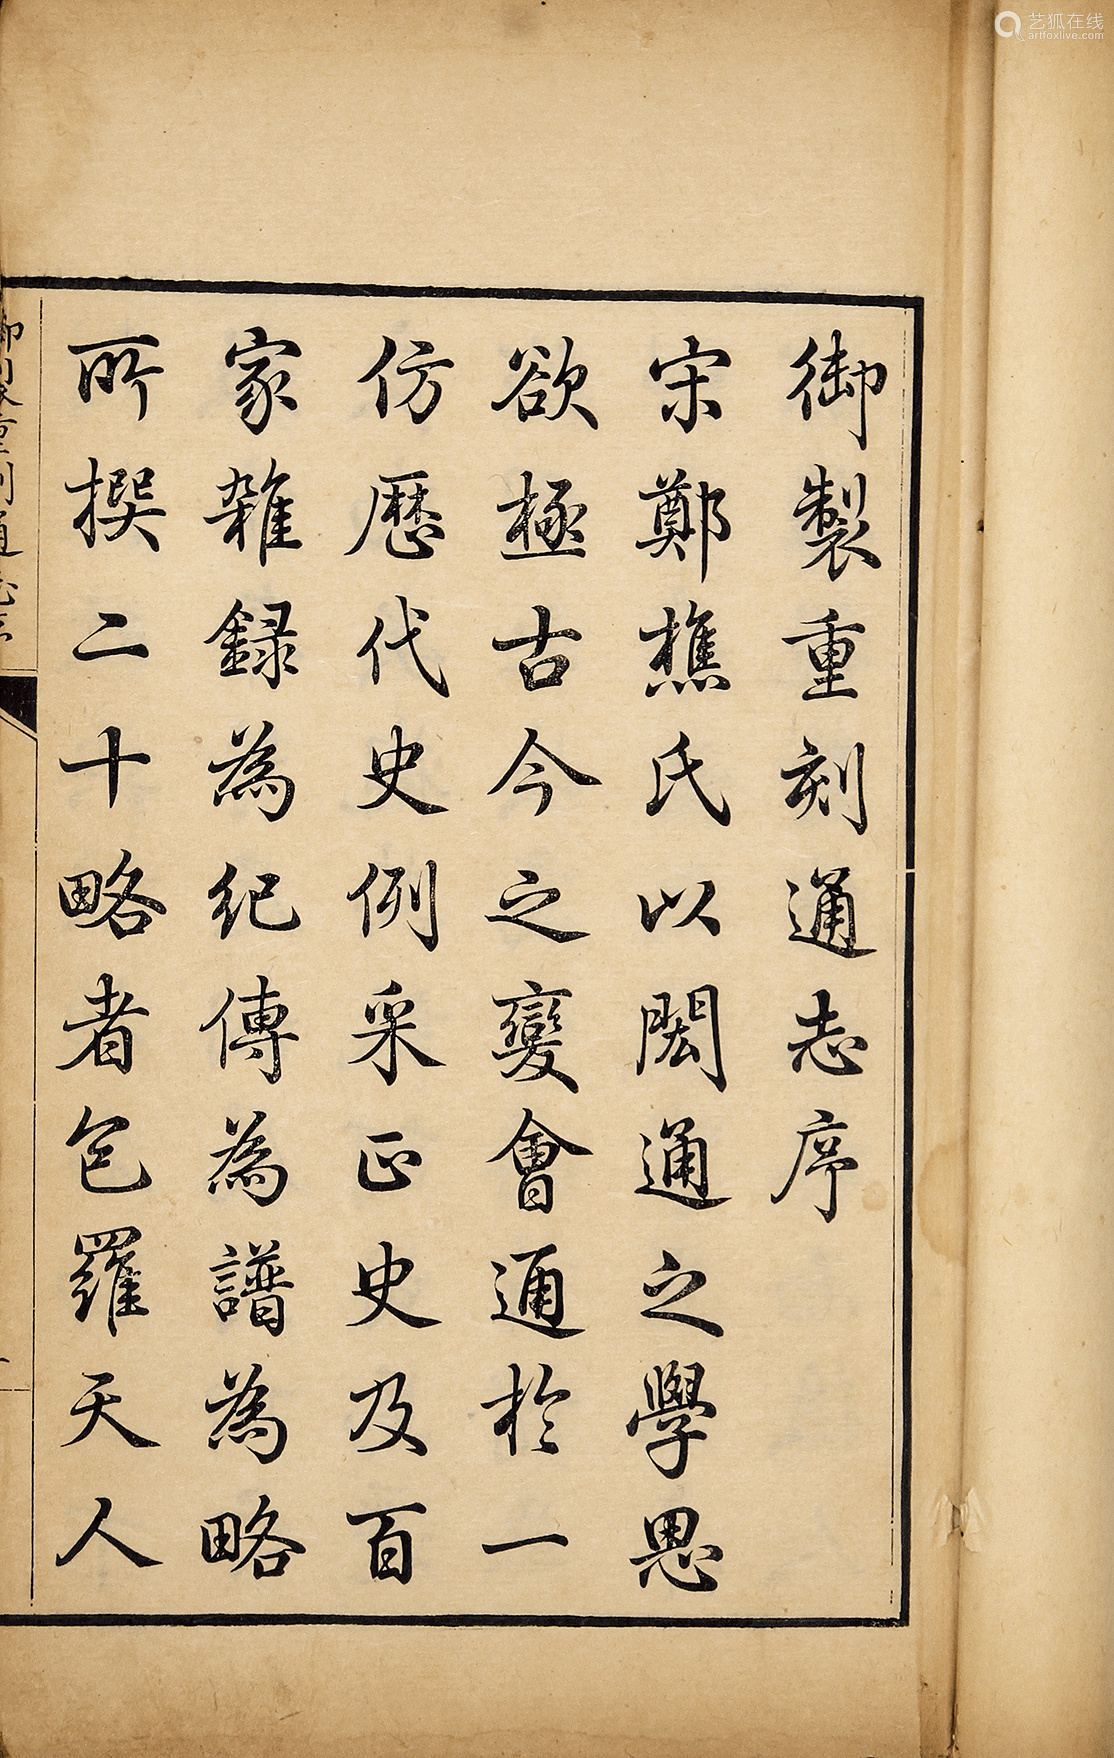 御製重刻通志序
宋鄭樵氏以閎通之學思
欲極古今之變會通於一
仿歷代史例采正史及百
家雜録為紀傳為譜為略
所撰二十略者包羅天人
艺狐在线
artfoxlive.com